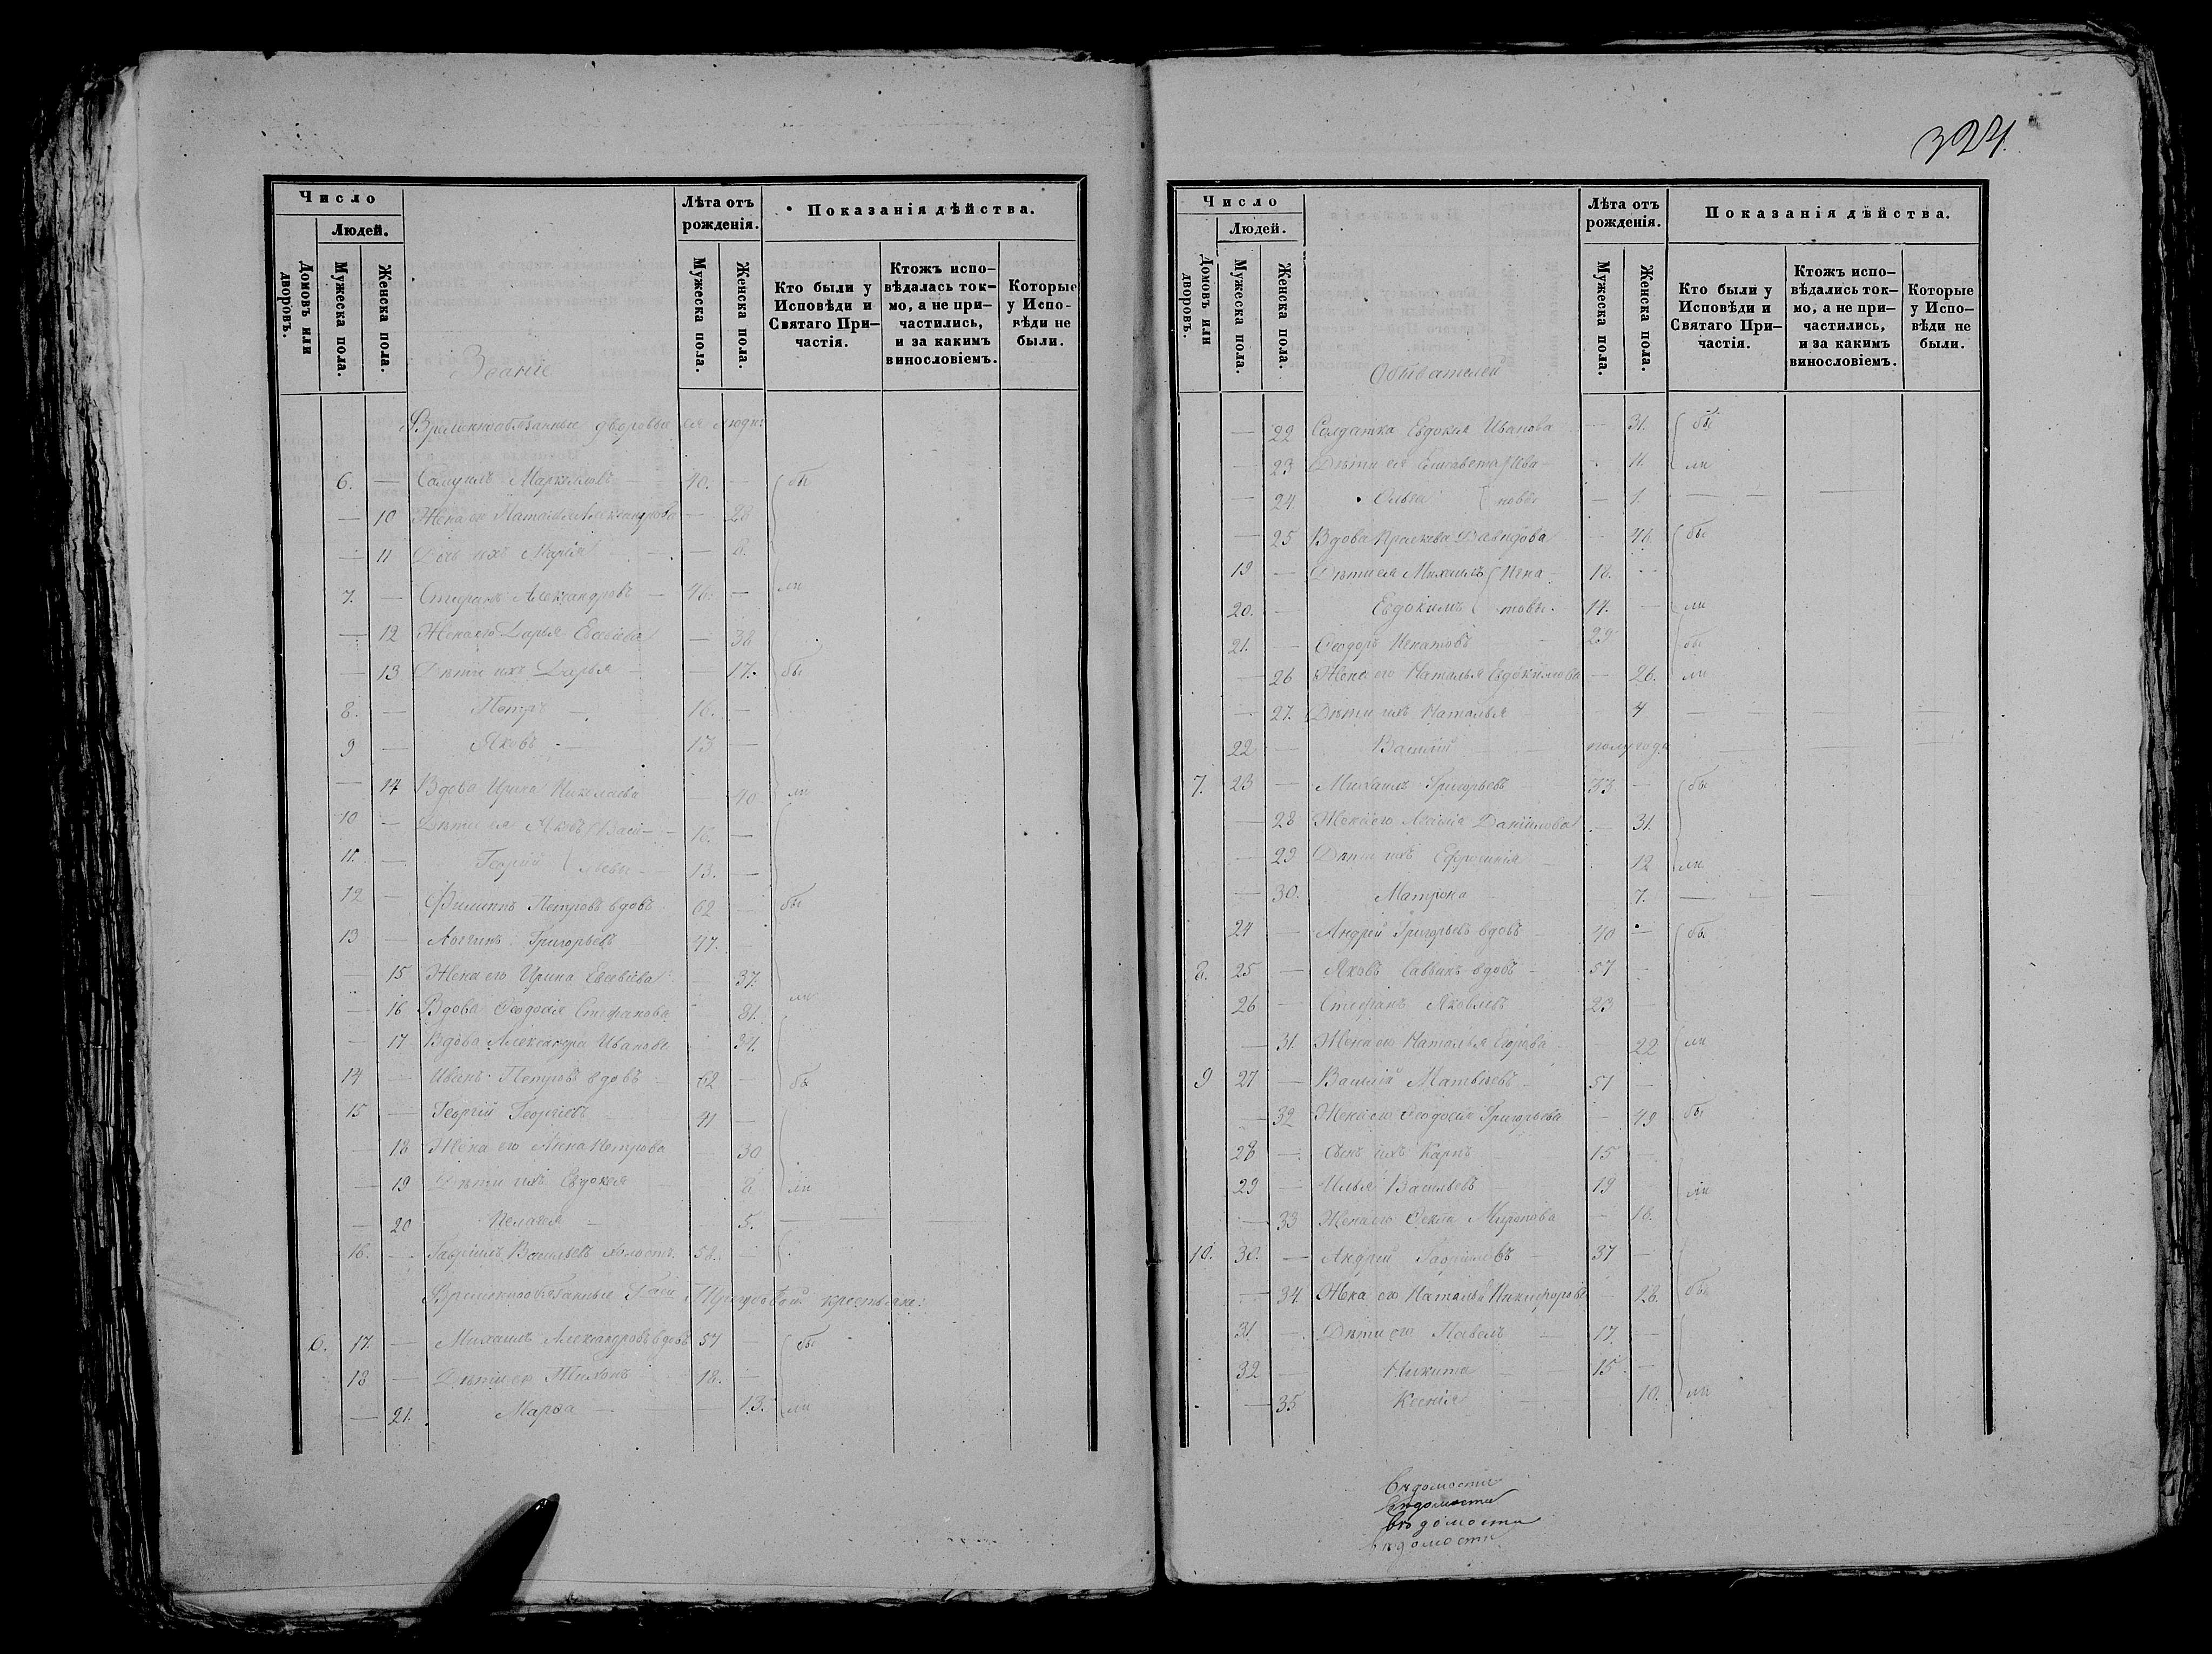 324.
Число
Людей.
Домовъ или дворовъ.
Мужеска пола.
Женска пола.
Званіе
Лѣта отъ рожденія.
Мужеска пола.
Женска пола.
Показанія дѣйства.
Кто были у Исповѣди и Святаго Причастія.
Ктожъ исповѣдалась токмо, а не причастились, и за какимъ винословіемъ.
Которые у Исповѣди не были.
Временнообязанные дворовые люди:
6. — — 40. — бы
— 10 Жена его Наталія Александрова — 28
— 11 Дочь ихъ Марія — 6.
7. — Стефанъ Александровъ — 46. — ли
— 12 Жена его Дарья Евсевіева — 38
— 13 Дѣти ихъ Дарья — — 17. бы
8. — Петръ — 16. —
9 — Яковъ — 13 —
— 14 Вдова Ирина Николаева — 40 ли
10 — Дѣти ея Яковъ Васи- — 16. —
11. — Георгій льевы — 13. —
12 — Филиппъ Петровъ вдовъ 62 — бы
13 — Логинъ Григорьевъ 47. —
— 15 Жена его Ирина Евсевіева — 37.
— 16 Вдова Ѳеодосія Стефанова — 81. ли
— 17 Вдова Александра Иванова — 34.
14 — Иванъ Петровъ вдовъ — 62 — бы
15 — Георгій Георгіевъ 41 —
— 18 Жена его Анна Петрова — 30
— 19 Дѣти ихъ Евдокія — 8 ли
— 20 Пелагея — 5. — —
16. — Гавріилъ Васильевъ холостъ 58. —
Временнообязанные крестьяне:
6. 17. — Михаилъ Александровъ вдовъ 57 — бы
18 — Дѣти его Тихонъ 18. —
— 21. Марѳа — — 13. ли
Число
Людей.
Домовъ или дворовъ.
Мужеска пола.
Женска пола.
Обывателей
Лѣта отъ рожденія.
Мужеска пола.
Женска пола.
Показанія дѣйства.
Кто были у Исповѣди и Святаго Причастія.
Ктожъ исповѣдались токмо, а не причастились, и за какимъ винословіемъ.
Которые у Исповѣди не были.
— 22 Солдатка Евдокія Иванова — 31. бы
— 23 Дѣти ея Елисавета Ива- — 11. ли
— 24. Ольга новы — 1. — — —
— 25 Вдова Праскева Давидова — 46. бы
19 — Дѣти ея Михаилъ Игна- 18. —
20. — Евдокимъ товы. 14. — ли
21. — Ѳеодоръ Игнатовъ 29 бы
— 26 Жена его Наталья Евдокимова — 26. ли
— 27. Дѣти ихъ Наталья — 4 — — —
22 — Василій — полугода — —
7. 23 — Михаилъ Григорьевъ 33 — бы
— 28 Жена его Даніилова — 31.
— 29 Дѣти ихъ Ефросинія — 12 ли
— 30. Матрона — 7. — — —
24 — Андрей Григорьевъ вдовъ — 40 — бы
8. 25 — Яковъ Саввинъ вдовъ — 57 —
26 — Стефанъ Яковлевъ 23 —
— 31. Жена его Наталья Егорова — 22 ли
9 27 — Василій Матвѣевъ — 51 —
— 32 Жена его Ѳеодосія Григорьева — 49 бы
28 — Сынъ ихъ Карпъ — 15 —
29 — Илья Васильевъ 19 — ли
— 33 Жена его Ѳекла Миронова — 18.
10. 30. — Андрей Гавріиловъ — 37 —
— 34. Жена его Наталья Никифорова — 28. бы
31 — Дѣти его Павелъ — 17. —
32 — Никита 15. —
— 35 Ксенія — 10. ли
Вѣдомости
Вѣдомости
Вѣдомости
вѣдомости